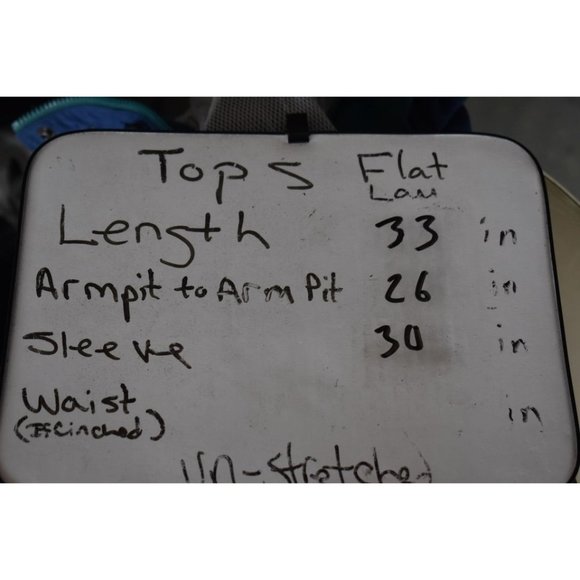 Tops Flat
Lau
Length 33 in
Armpit to ArmPit 26 in
Sleeve 30 in
Waist in
(If Cinched)
Un-Stretched